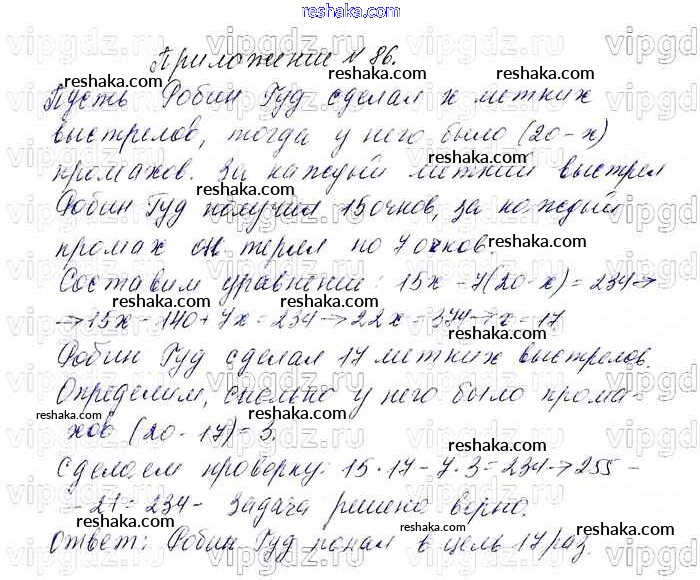 reshaka.com
Приложение № 86.
Пусть Робин Гуд сделал x метких
выстрелов, тогда у него было (20-x)
промахов. За каждый меткий выстрел
Робин Гуд получил 15 очков, за каждый
промах он терял по 7 очков.
Составим уравнение: 15x - 7(20-x) = 234 →
→ 15x - 140 + 7x = 234 → 22x = 374 → x = 17
Робин Гуд сделал 17 метких выстрелов.
Определим, сколько у него было прома-
хов (20-17) = 3.
Сделаем проверку: 15·17 - 7·3 = 234 → 255 -
- 21 = 234 - Задача решена верно.
Ответ: Робин Гуд попал в цель 17 раз.
reshaka.com